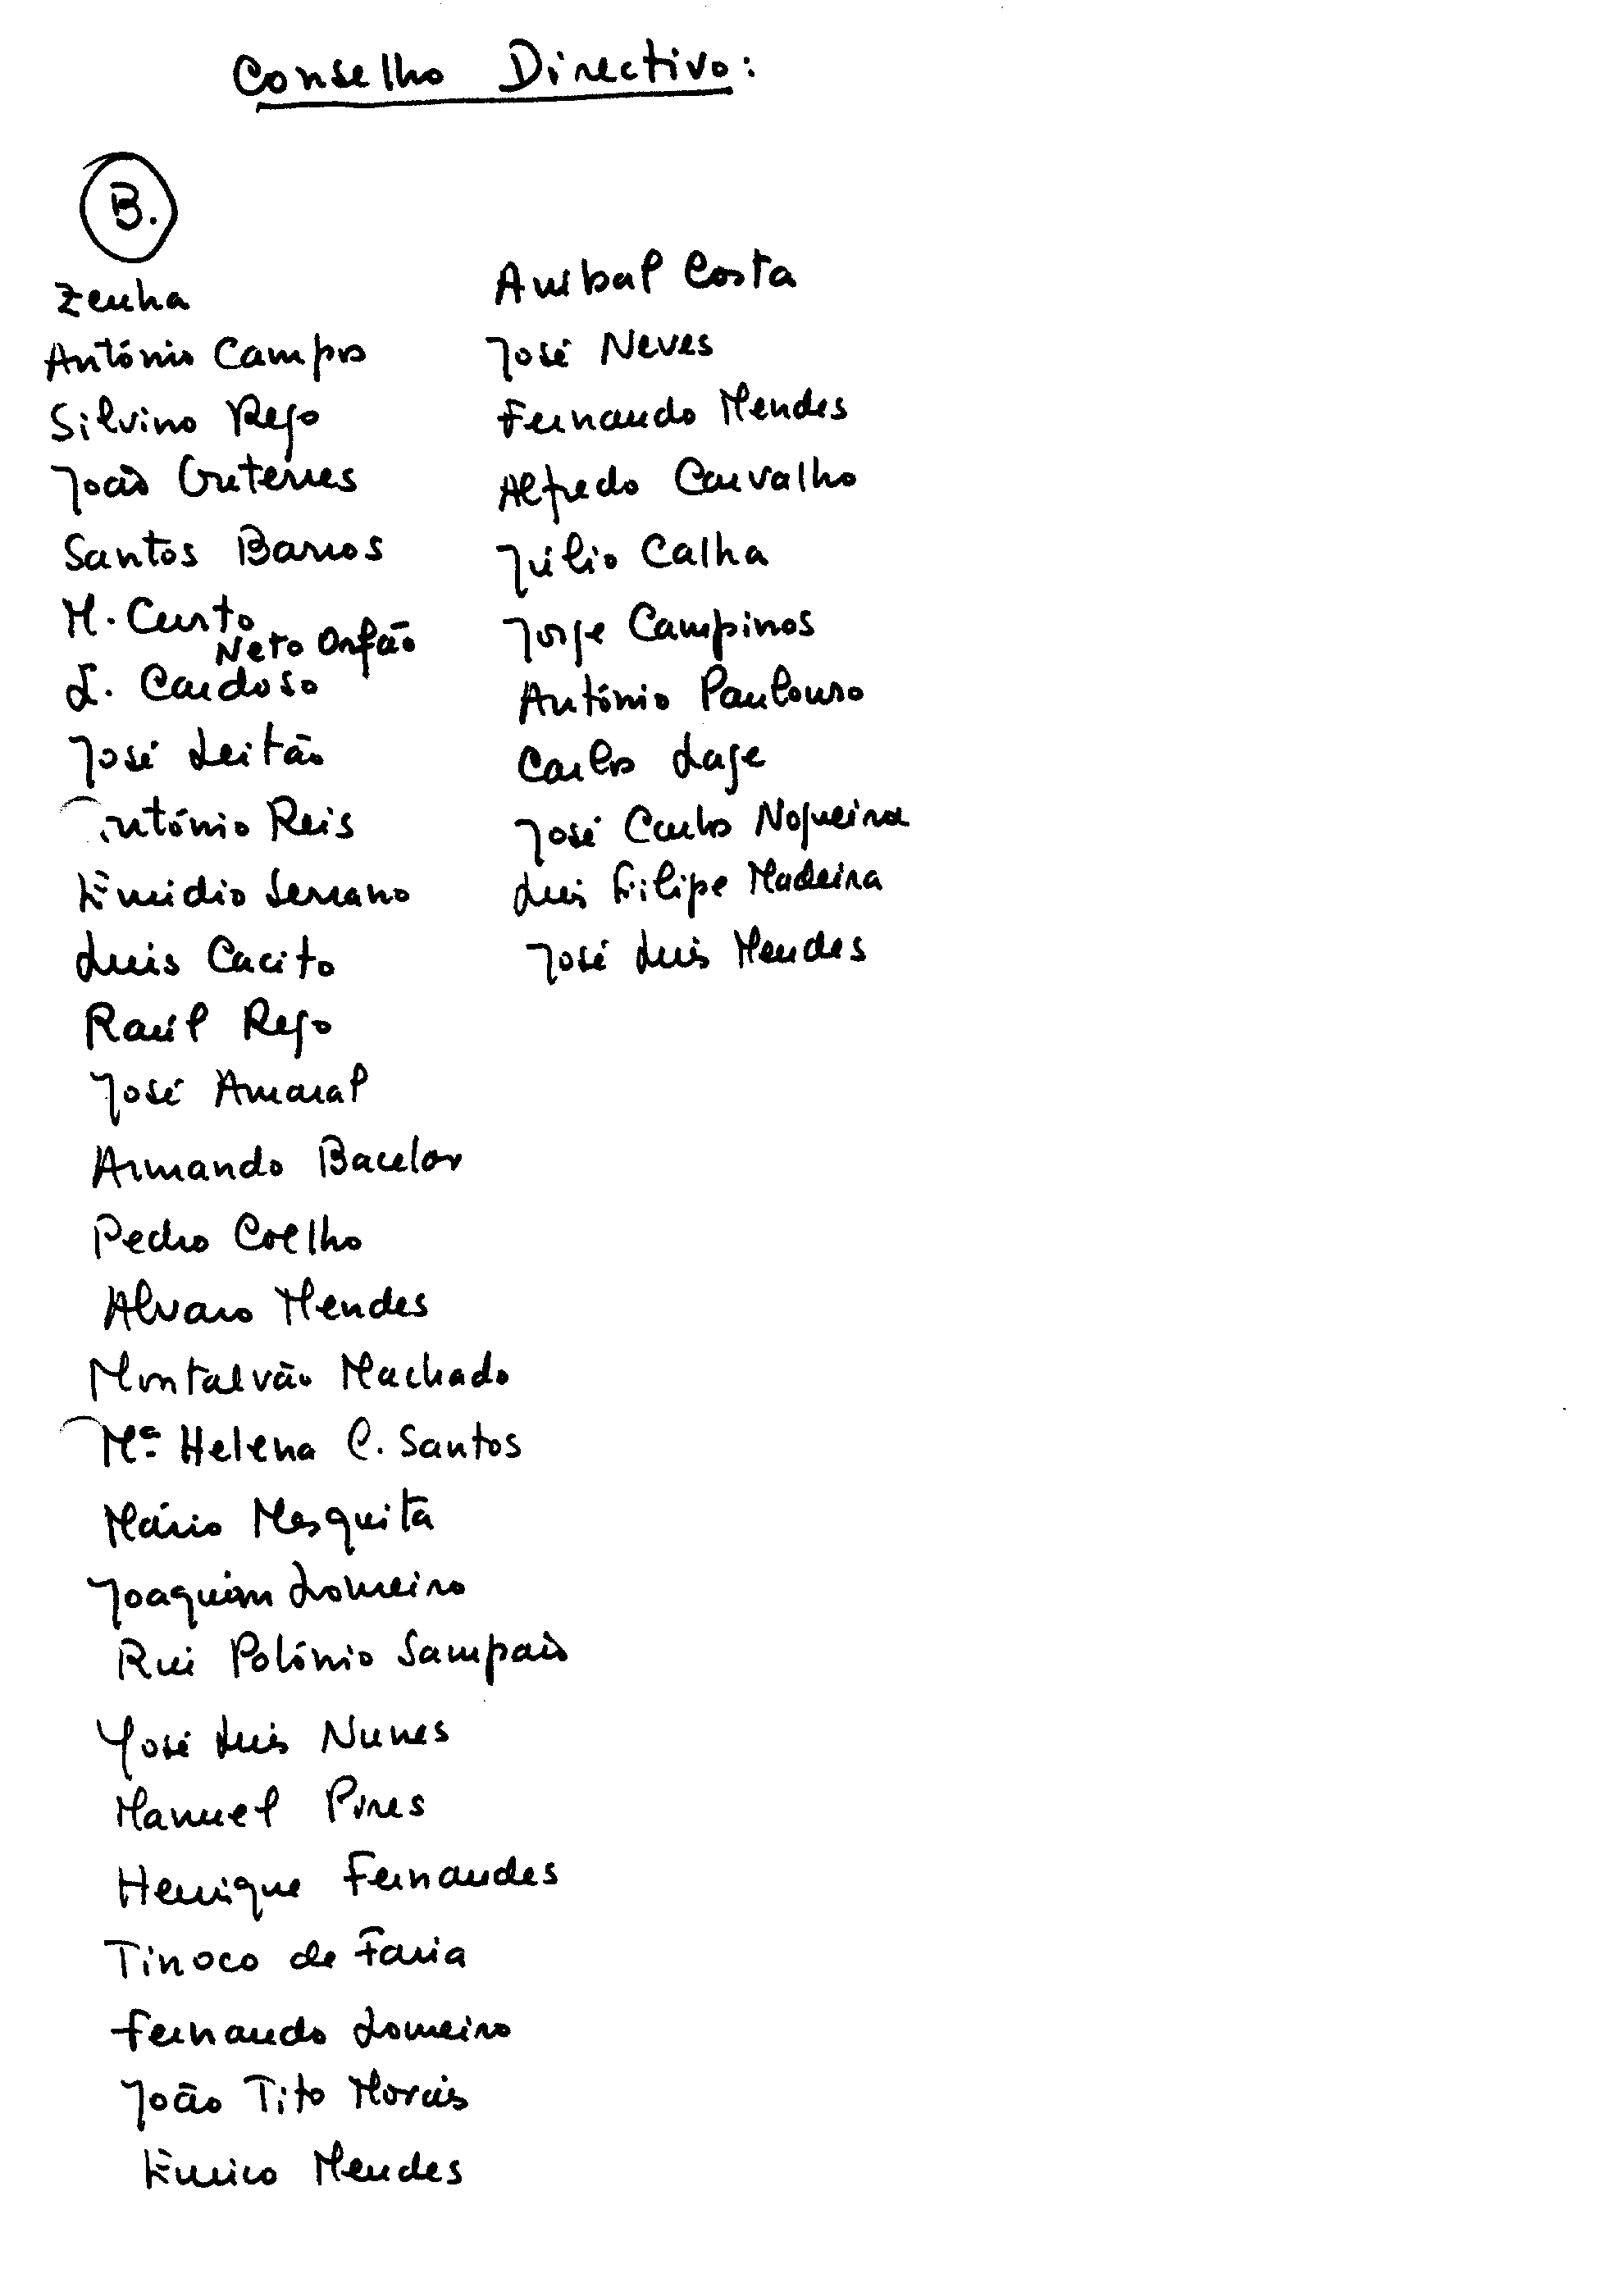 Conselho Directivo:
B.
Zenha
António Campos
Silvino Rego
João Guterres
Santos Barros
M. Custo
Neto Orfão
L. Cardoso
José Leitão
António Reis
Emidio Serrano
Luis Cacito
Raúl Rego
José Amaral
Armando Bacelar
Pedro Coelho
Alvaro Mendes
Montalvão Machado
Mª Helena C. Santos
Mário Mesquita
Joaquim Lomeiro
Rui Polónio Sampaio
José Luis Nunes
Manuel Pires
Henrique Fernandes
Tinoco de Faria
Fernando Lomeiro
João Tito Morais
Eurico Mendes
Anibal Costa
José Neves
Fernando Mendes
Alfredo Carvalho
Júlio Calha
Jorge Campinos
António Paulouro
Carlos Lage
José Carlos Nogueira
Luis Filipe Madeira
José Luis Mendes